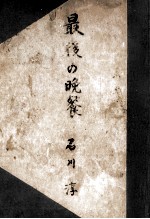 最後の晩餐
石川淳